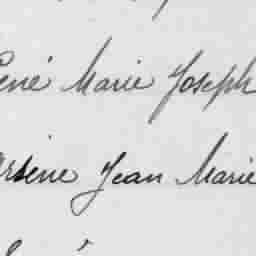 René Marie Joseph
Arsène Jean Marie